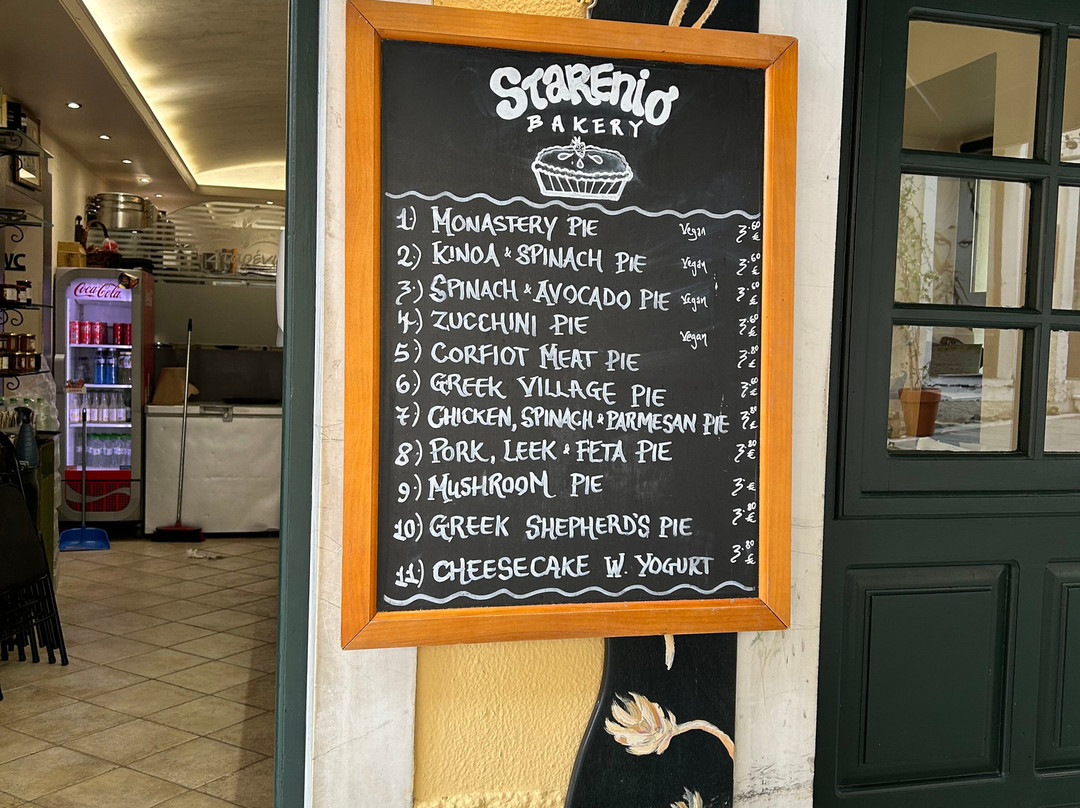 Starenio
BAKERY
1) MONASTERY PIE Vegan 3.60 €
2.) KINOA & SPINACH PIE Vegan 3.60 €
3.) SPINACH & AVOCADO PIE Vegan 3.60 €
4.) ZUCCHINI PIE Vegan 3.60 €
5.) CORFIOT MEAT PIE 3.80 €
6.) GREEK VILLAGE PIE 3.60 €
7.) CHICKEN, SPINACH & PARMESAN PIE 3.80 €
8.) PORK, LEEK & FETA PIE 3.80 €
9.) MUSHROOM PIE 3.€
10) GREEK SHEPHERD'S PIE 3.80 €
11.) CHEESECAKE W. YOGURT 3.80 €
Coca-Cola
WC